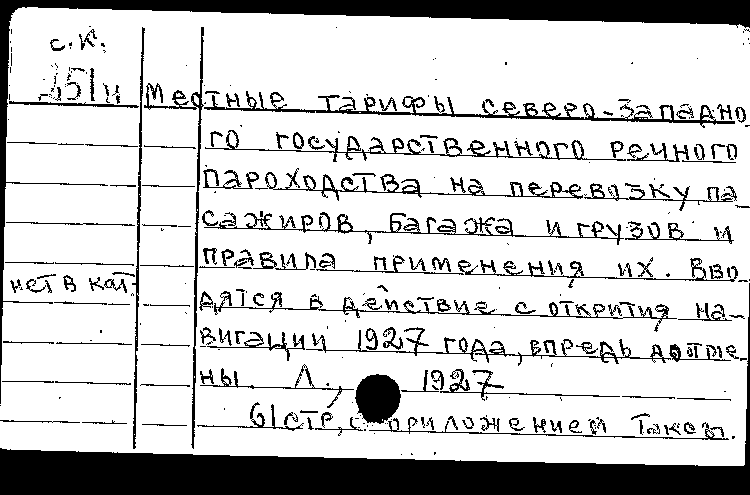 с.к.
351и Местные тарифы северо-западно
го государственного речного
пароходства на перевозку па
сажиров, багажа и грузов и
правила применения их. Вво
нет в кат.
дятся в действие с открития на-
вигации 1927 года, впредь до отме
ны. Л., 1927
61 стр, с приложением Таксы.